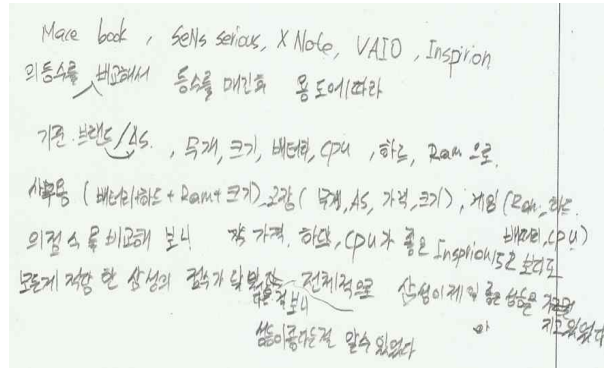 Mace book , SeNs serious, X Note, VAIO , Inspirion
의 등수를 비교해서 등수를 매긴후 용도에따라
기준 브랜드/AS. , 무게, 크기, 배터리, CPU , 하드, Ram 으로
사무용 ( 배터리+하드 + Ram + 크기), ( 무게, AS, 가격, 크기) , 게임 (Ram, 하드.
배터리, CPU)
의 점수를 비교해 보니 가격. 하드, CPU가 좋은 Inspirion15은
모든게 적당 한 삼성의 점수가 전체적으로 삼성이 제일 좋은 성능을
보니 지고있었다
성능이좋다는걸 알수있었다